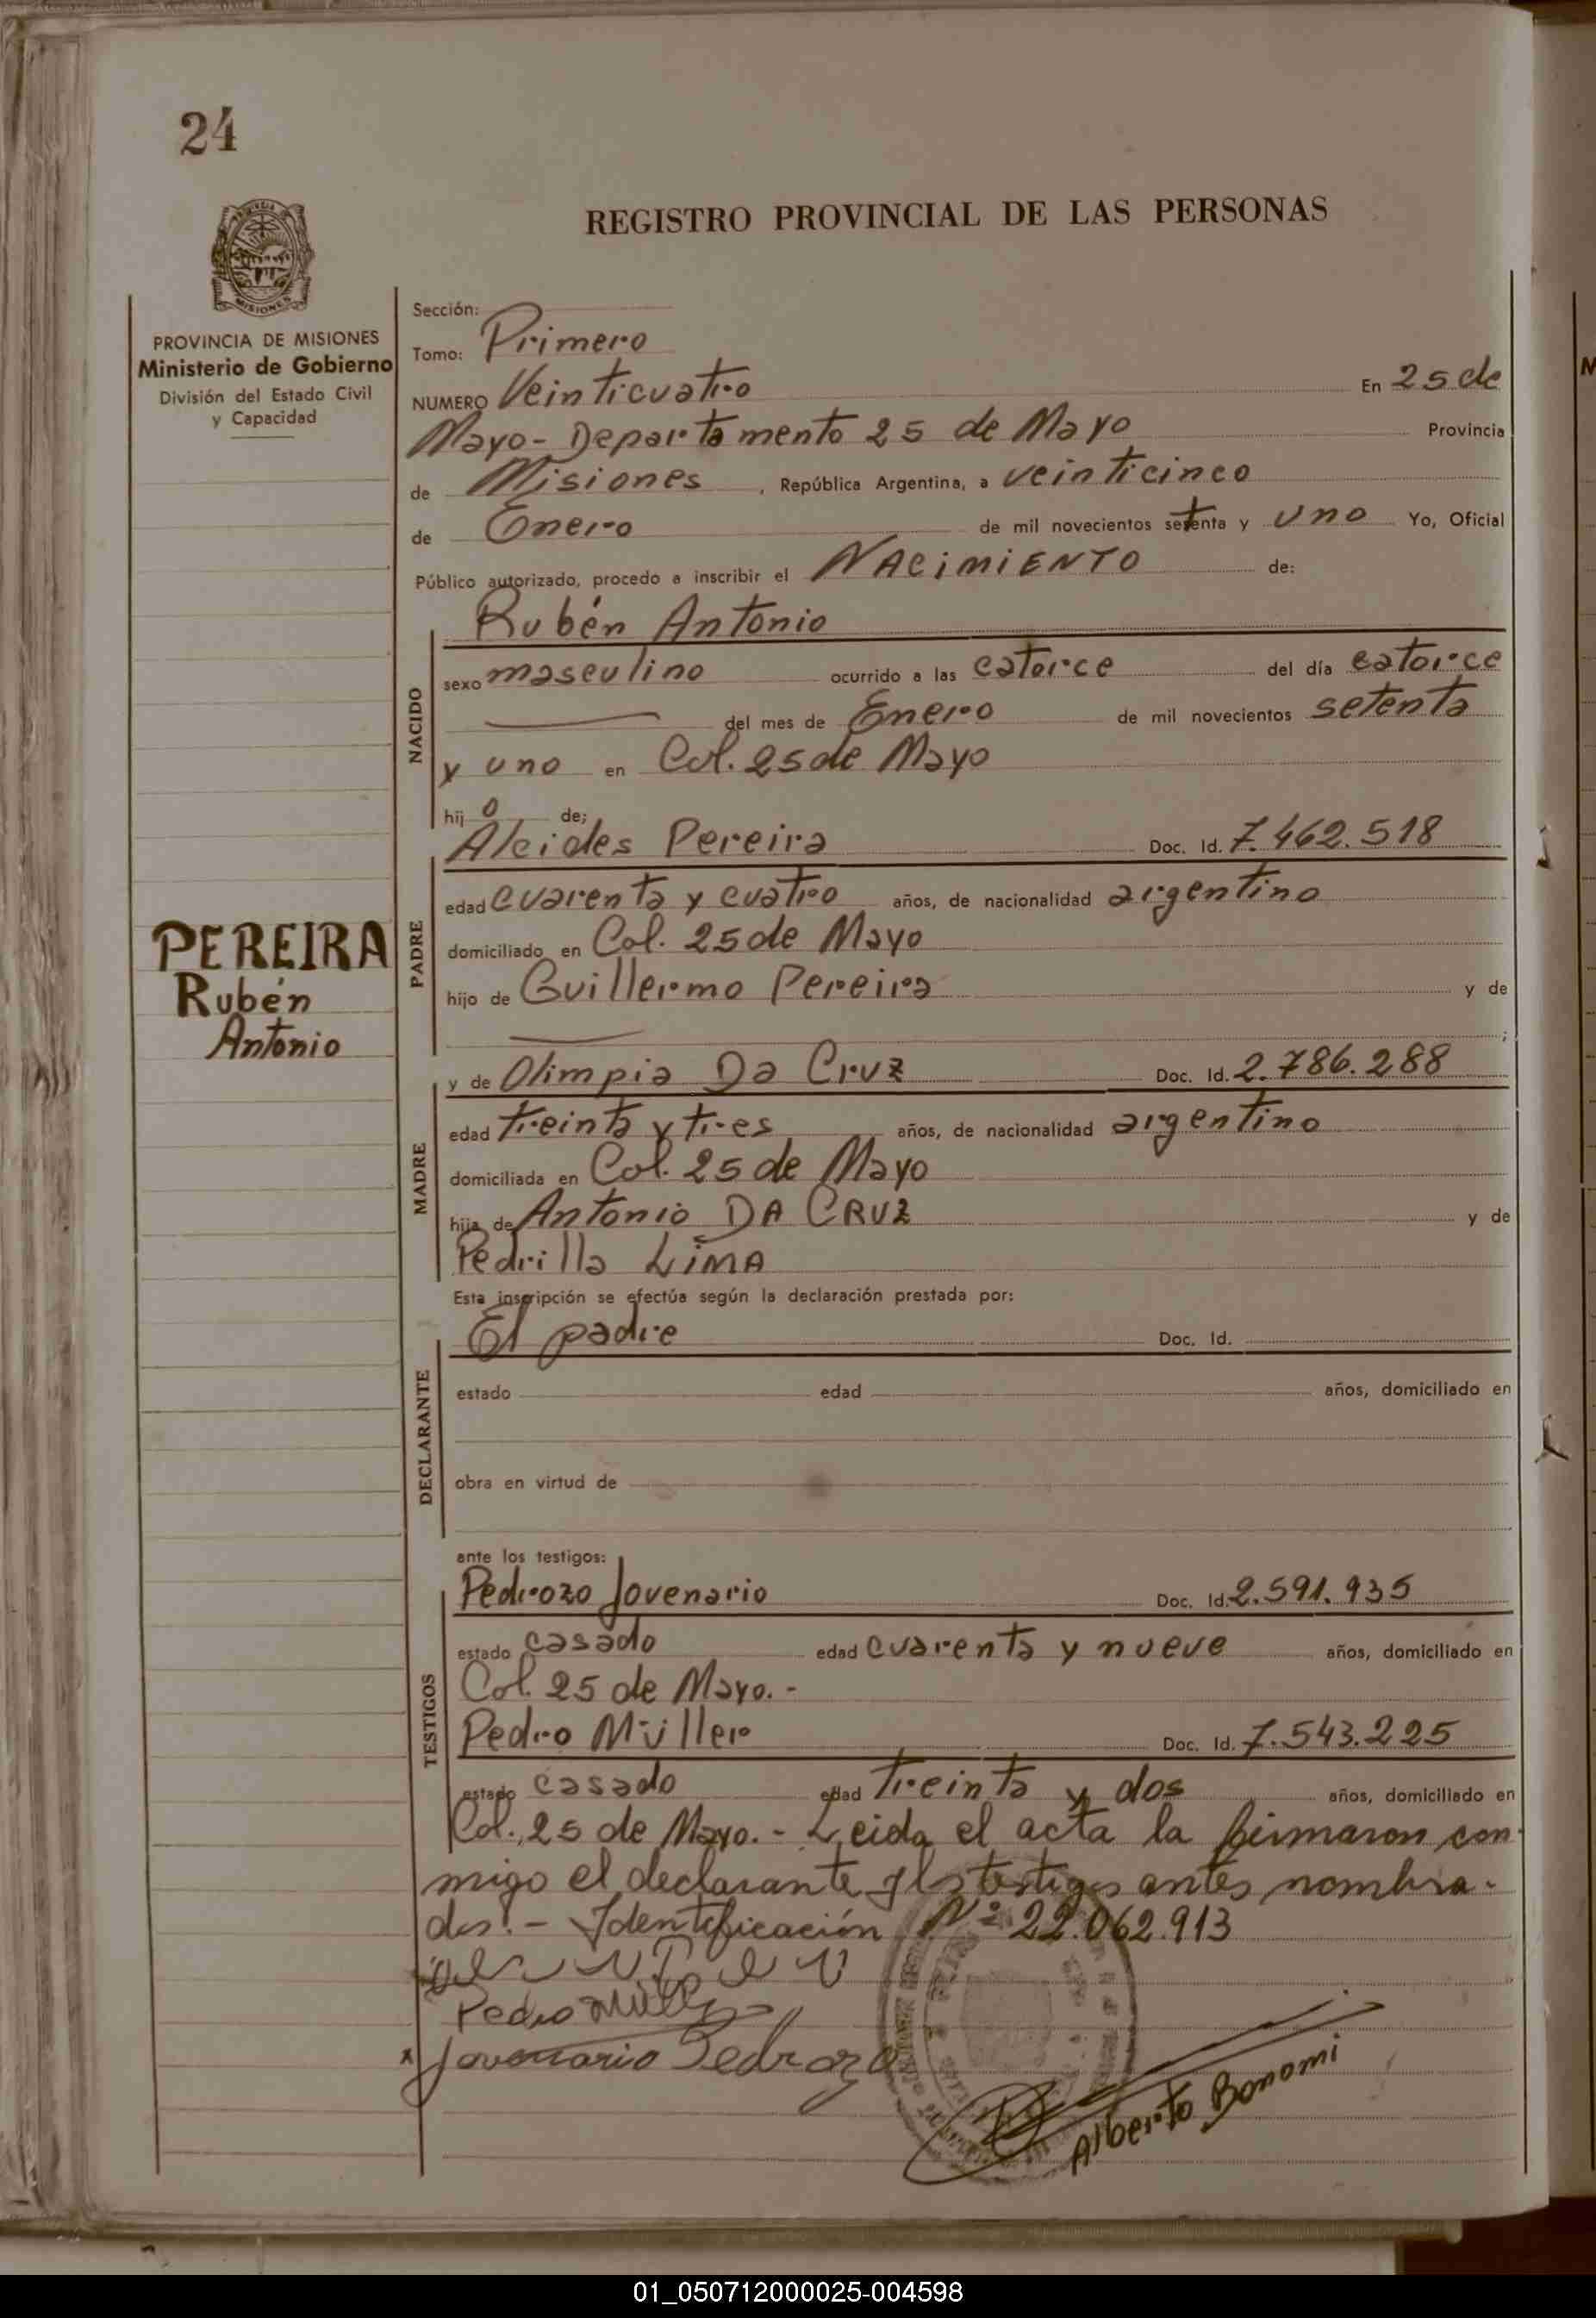 24
MISIONES
REGISTRO PROVINCIAL DE LAS PERSONAS
PROVINCIA DE MISIONES
Ministerio de Gobierno
División del Estado Civil
y Capacidad
Sección:
Tomo: Primero
NUMERO Veinticuatro En 25 de
Mayo - Departamento 25 de Mayo Provincia
de Misiones, República Argentina, a veinticinco
de Enero de mil novecientos setenta y uno Yo, Oficial
Público autorizado, procedo a inscribir el NACIMIENTO de:
NACIDO
Rubén Antonio
sexo masculino ocurrido a las catorce del día catorce
del mes de Enero de mil novecientos setenta
y uno en Col. 25 de Mayo
hij o de;
PADRE
Alcides Pereira Doc. Id. 7.462.518
edad cuarenta y cuatro años, de nacionalidad argentino
domiciliado en Col. 25 de Mayo
hijo de Guillermo Pereira y de
;
PEREIRA
Rubén
Antonio
MADRE
y de Olimpia Da Cruz Doc. Id. 2.786.288
edad treinta y tres años, de nacionalidad argentino
domiciliada en Col. 25 de Mayo
hija de Antonio DA CRUZ y de
Pedrilla LIMA
Esta inscripción se efectúa según la declaración prestada por:
DECLARANTE
El padre Doc. Id.
estado edad años, domiciliado en
obra en virtud de
ante los testigos:
TESTIGOS
Pedrozo Jovenario Doc. Id. 2.591.935
estado casado edad cuarenta y nueve años, domiciliado en
Col. 25 de Mayo. -
Pedro Müller Doc. Id. 7.543.225
estado casado edad treinta y dos años, domiciliado en
Col. 25 de Mayo. - Leida el acta la firmaron con
migo el declarante y ls testigos antes nombra-
dos. - Identificación Nº 22.062.913
Pedro Müller
Jovenario Pedrozo
Alberto Bonomi
01_050712000025-004598